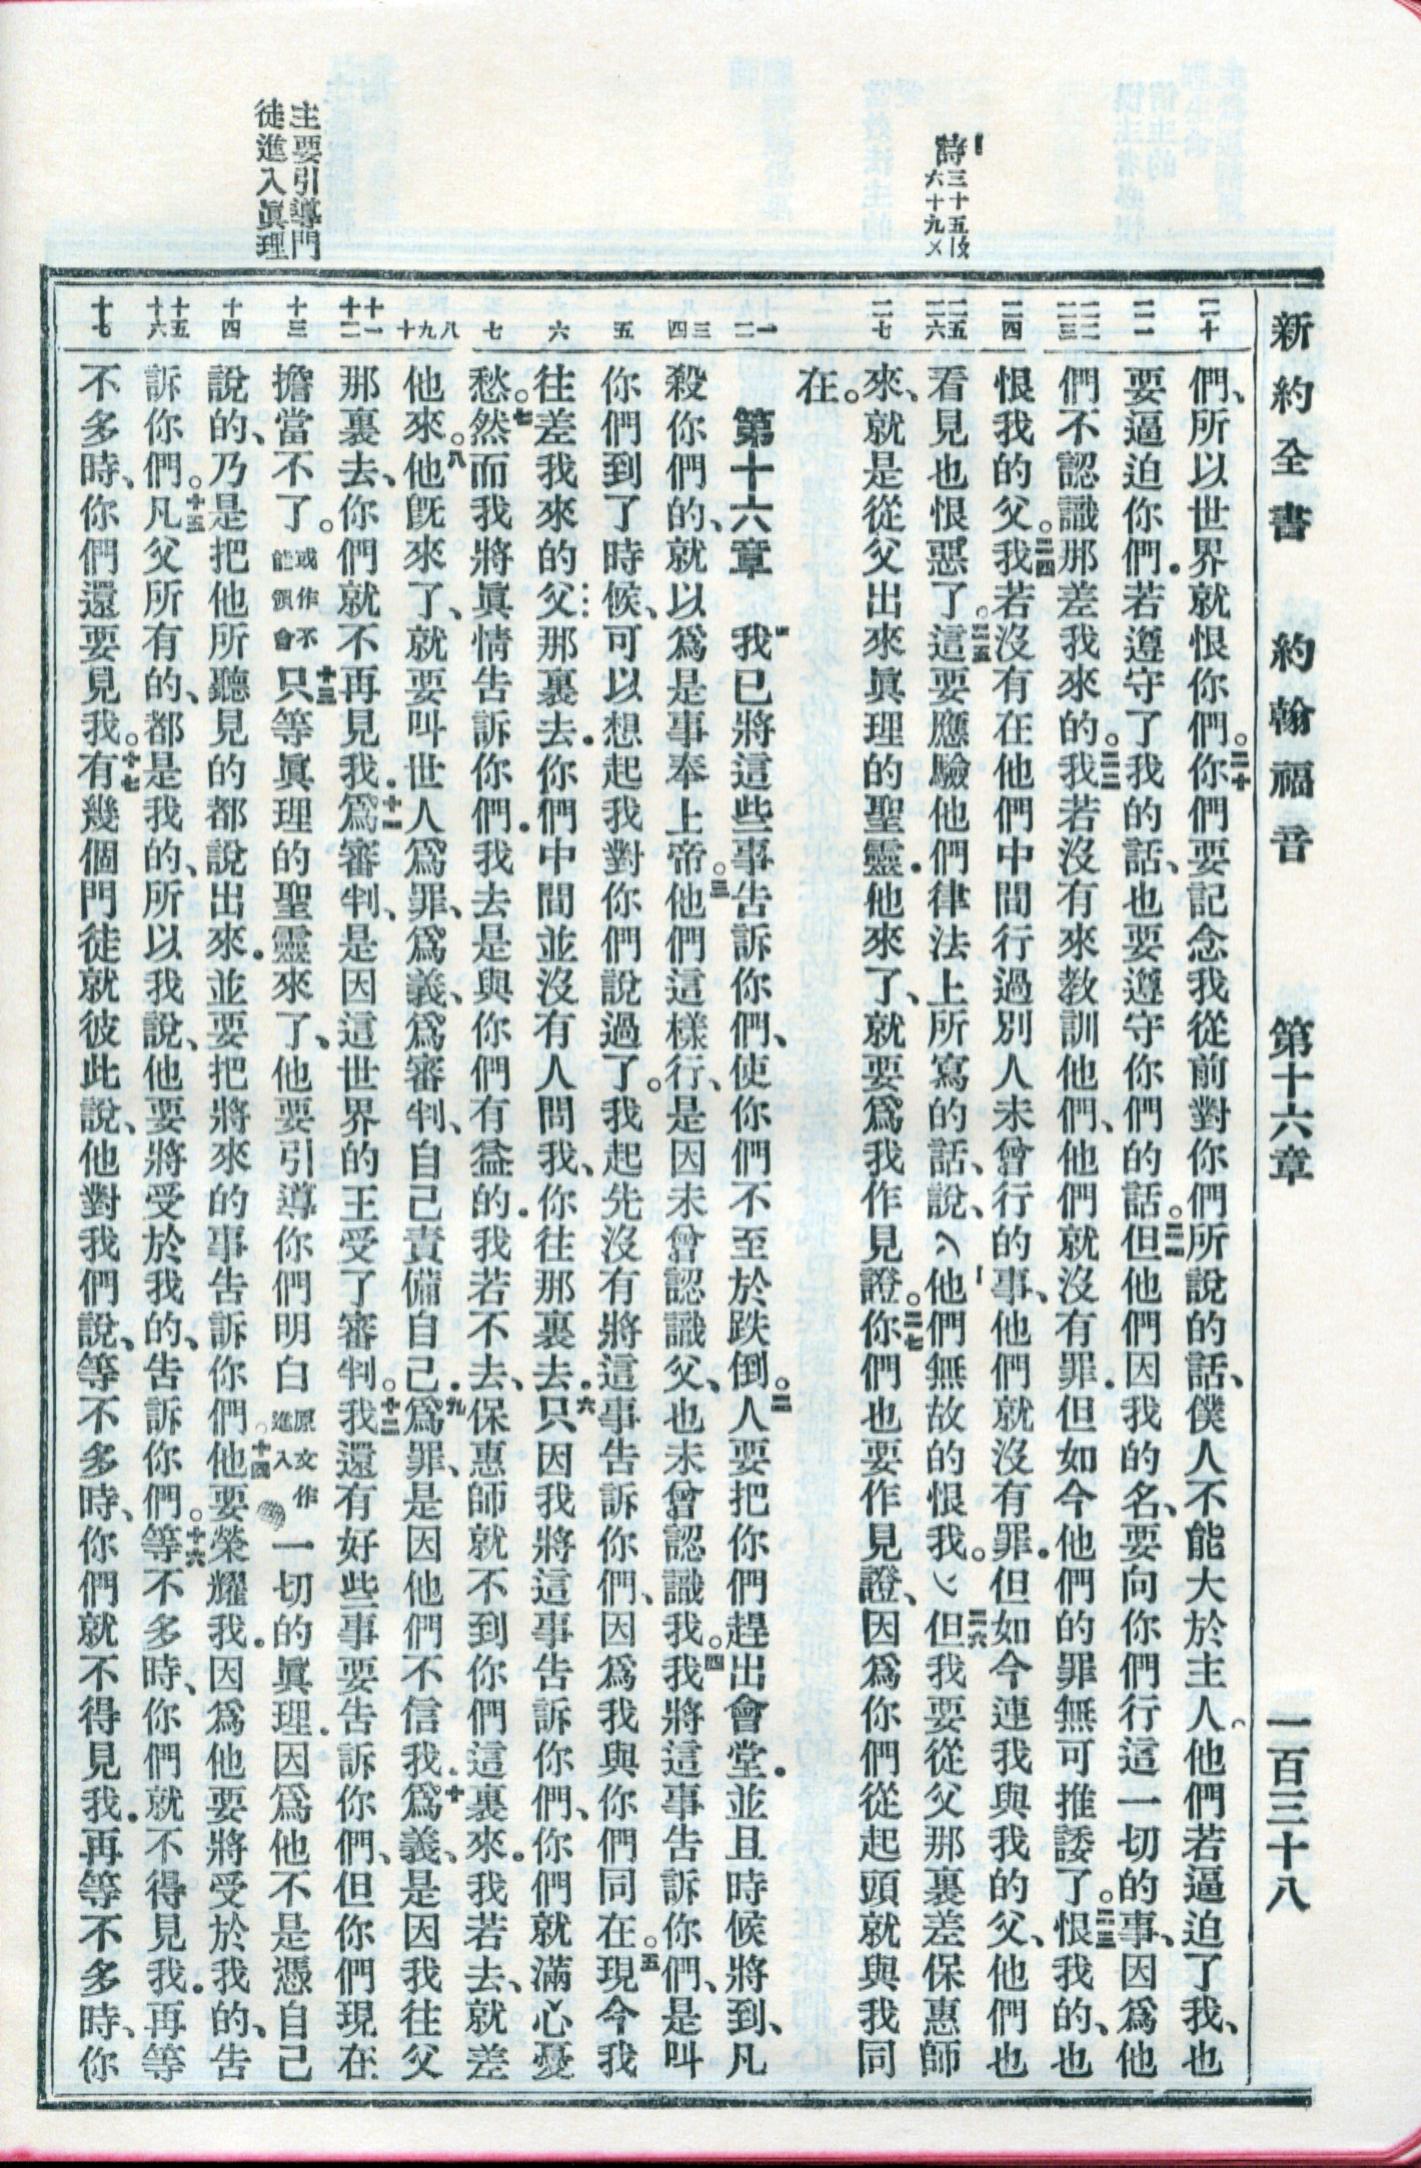 新約全書　約翰福音　第十六章　一百三十八
詩三十五
六十九
主要引導門
徒進入眞理
二十
二一
二二
二三
二四
二五
二六
二七
一
二
三
四
五
六
七
八
九
十
十一
十二
十三
十四
十五
十六
十七
們、所以世界就恨你們。二十你們要記念我從前對你們所說的話、僕人不能大於主人。他們若逼迫了我、也
要逼迫你們．若遵守了我的話、也要遵守你們的話。二一但他們因我的名、要向你們行這一切的事、因爲他
們不認識那差我來的。二二我若沒有來教訓他們、他們就沒有罪．但如今他們的罪無可推諉了。二三恨我的、也
恨我的父。二四我若沒有在他們中間行過別人未曾行的事、他們就沒有罪．但如今連我與我的父、他們也
看見也恨惡了。二五這要應驗他們律法上所寫的話、說、他們無故的恨我。二六但我要從父那裏差保惠師
來、就是從父出來眞理的聖靈．他來了、就要爲我作見證。二七你們也要作見證、因爲你們從起頭就與我同
在。
第十六章　我已將這些事告訴你們、使你們不至於跌倒。二人要把你們趕出會堂．並且時候將到、凡
殺你們的、就以爲是事奉上帝。三他們這樣行、是因未曾認識父、也未曾認識我。四我將這事告訴你們、是叫
你們到了時候、可以想起我對你們說過了。我起先沒有將這事告訴你們、因爲我與你們同在。五現今我
往差我來的父那裏去．你們中間並沒有人問我、你往那裏去．六只因我將這事告訴你們、你們就滿心憂
愁。七然而我將眞情告訴你們．我去是與你們有益的．我若不去、保惠師就不到你們這裏來．我若去、就差
他來。八他旣來了、就要叫世人爲罪、爲義、爲審判、自己責備自己．九爲罪、是因他們不信我．十爲義、是因我往父
那裏去、你們就不再見我．十一爲審判、是因這世界的王受了審判。十二我還有好些事要告訴你們、但你們現在
擔當不了。或作不能領會十三只等眞理的聖靈來了、他要引導你們明白原文作進入一切的眞理．因爲他不是憑自己
說的、乃是把他所聽見的都說出來．並要把將來的事告訴你們。十四他要榮耀我．因爲他要將受於我的、告
訴你們。十五凡父所有的、都是我的、所以我說、他要將受於我的、告訴你們。十六等不多時、你們就不得見我．再等
不多時、你們還要見我。十七有幾個門徒就彼此說、他對我們說、等不多時、你們就不得見我．再等不多時、你